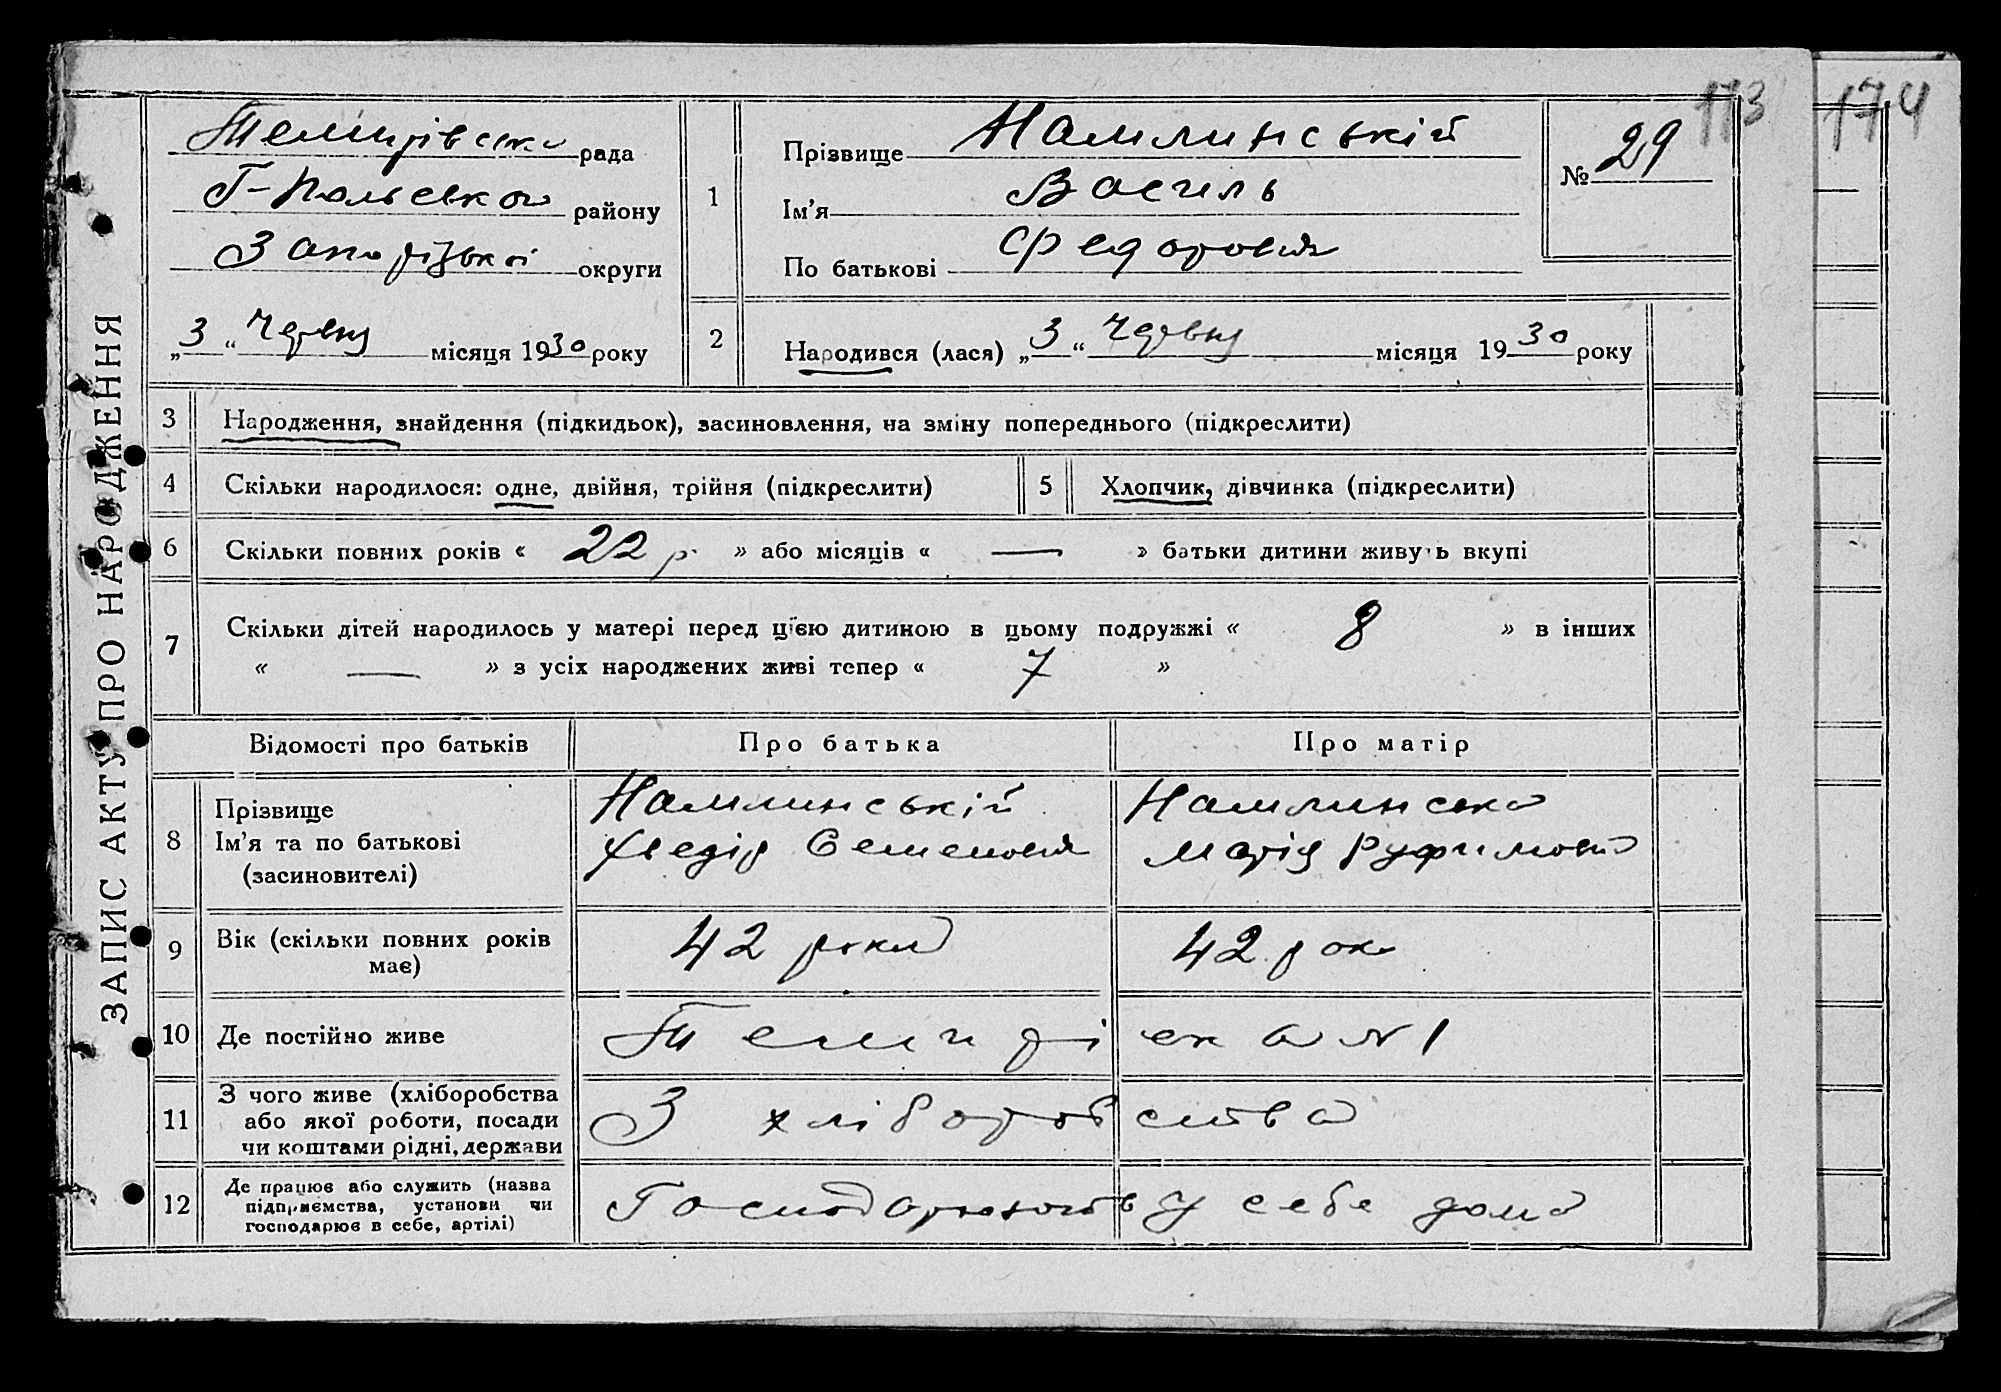 173
174
ЗАПИС АКТУ ПРО НАРОДЖЕННЯ
Темирівська рада
Г-Польськой району
Запорізькоі округи
„3“ Червня місяця 1930 року
1
Прізвище Намлинській
Ім'я Василь
По батькові Федорович
№ 29
2
Народився (лася) „3“ Червня місяця 1930 року
3 Народження, знайдення (підкидьок), засиновлення, на зміну попереднього (підкреслити)
4 Скільки народилося: одне, двійня, трійня (підкреслити) 5 Хлопчик, дівчинка (підкреслити)
6 Скільки повних років « 22 р. » або місяців « — » батьки дитини живуть вкупі
7 Скільки дітей народилось у матері перед цією дитиною в цьому подружжі « 8 » в інших
« — » з усіх народжених живі тепер « 7 »
Відомості про батьків Про батька Про матір
8 Прізвище
Ім'я та по батькові
(засиновителі)
Намлинській
Хведір Семенович
Намлинська
Марія Руфимовна
9 Вік (скільки повних років
має)
42 роки 42 рок
10 Де постійно живе Темирівка №1
11 З чого живе (хліборобства
або якої роботи, посади
чи коштами рідні, держави
З хліборобства
12 Де працює або служить (назва
підприємства, установи чи
господарює в себе, артілі)
Господарюють у себе дома